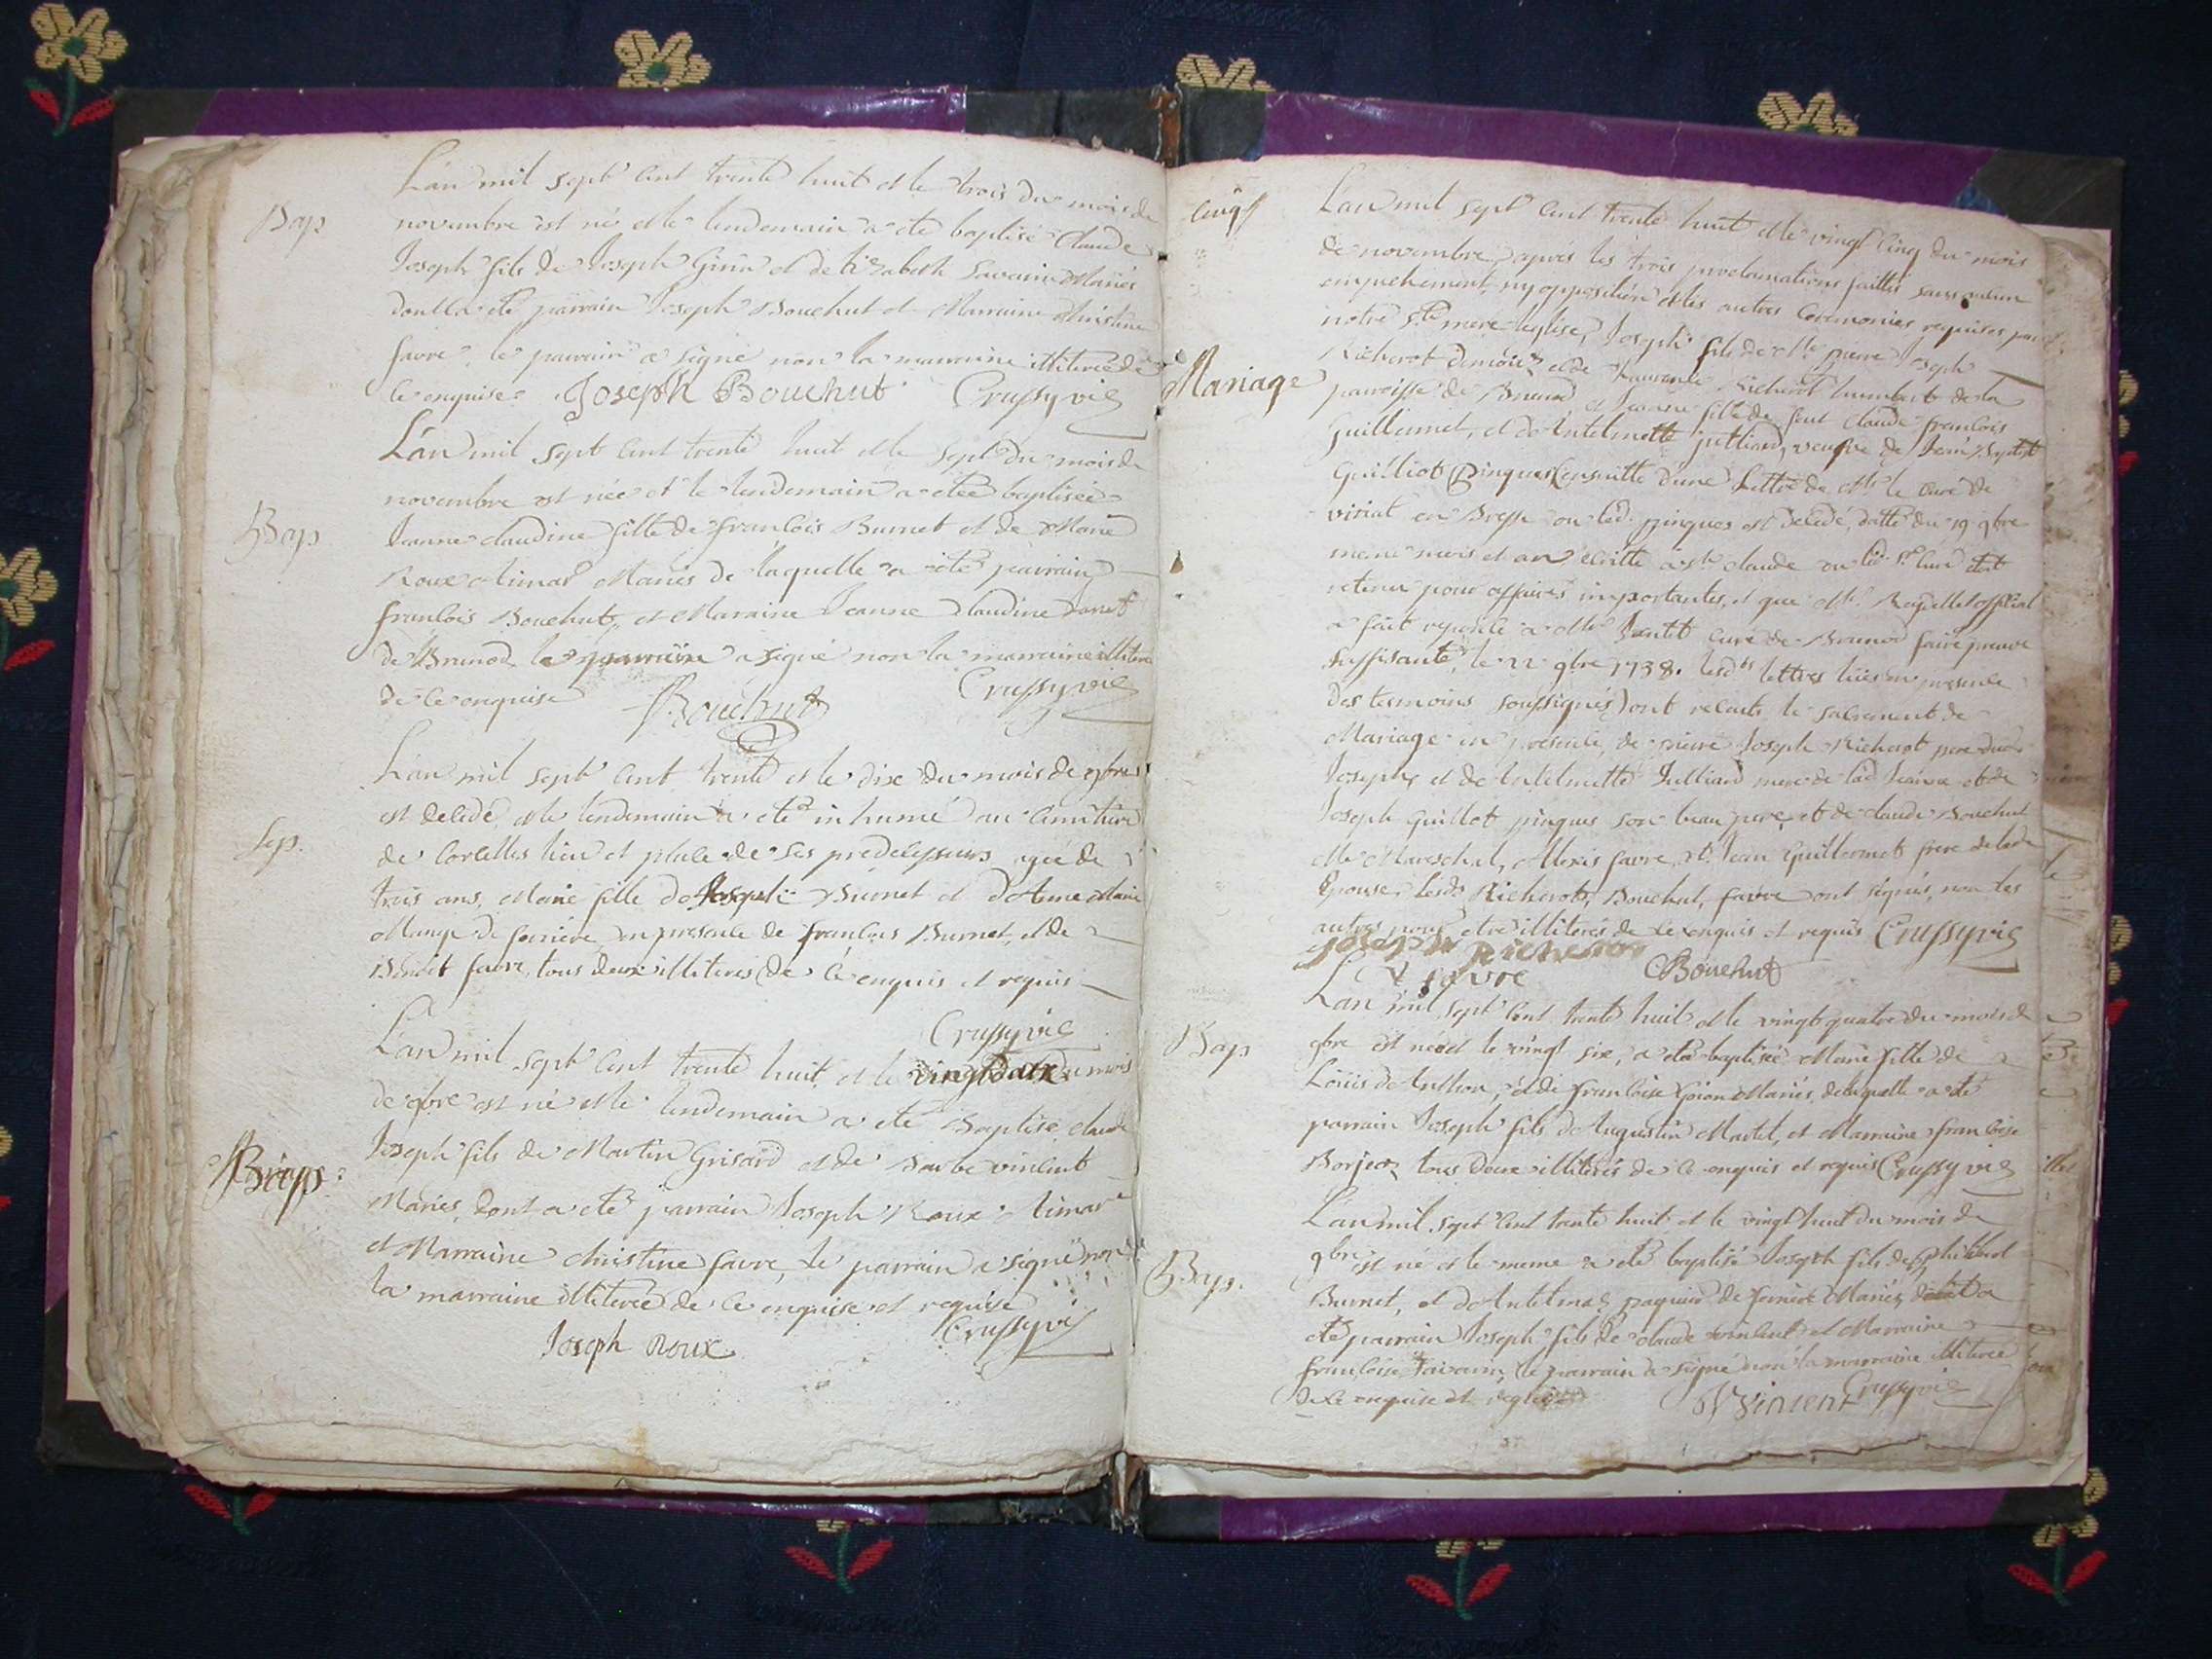 L'an mil sept cent trente huit et le trois du mois de
Bap
novembre est né et le lendemain a été baptisé Claude
Joseph fils de Joseph Girin et de Elizabeth Savarin Mariés
dont a été parrain Joseph Bouchut et Marraine Christine
favre le parrain a signé non la marraine illiterée de
ce enquise Joseph Bouchut Crussy vic
L'an mil sept cent trente huit et le sept du mois de
novembre est née et le lendemain a étée baptisée
Bap
Jeanne claudine fille de françois Burnet et de Marie
Roux Mariés de laquelle a été parrain
françois Bouchut, et Maraine Jeanne Claudine
de Brenod le parrain a signé non la marraine illiterée
de ce enquise Bouchut Crussy vic
L'an mil sept cent trente et le dix du mois de 9bre
est decedé et le lendemain a été inhumé au cimitiere
Sep.
de Corcelles lieu et place de ses predecesseurs agée de
trois ans, Marie fille de Joseph Burnet et d'Anne Marie
de ferriere en presence de françois Burnet, et de
Benoit favre, tous deux illiterés de ce enquis et requis
Crussy vic
L'an mil sept cent trente huit et le vingt deux du mois
de 9bre est né et le lendemain a été Baptisé claude
Bap:
Joseph fils de Martin Grisard et de Barbe vincent
Mariés, dont a été parrain Joseph Roux
et Marraine christine favre, le parrain a signé non
la marraine illiterée de ce enquise et requise
Joseph Roux Crussy vic
L'an mil sept cent trente huit et le vingt cinq du mois
de novembre, après les trois proclamations faittes sans aucun
empechement, ny opposition et les autres ceremonies requises par
notre Ste mere leglise, Joseph fils de Mre pierre Joseph
Mariage
Richerot et de Laurence Richerot humbert de la
paroisse de Brenod et Jeanne fille de feut Claude françois
Guillermet, et de Antelmette Julliard, veufve de Jean
Guilliot Pingues (ensuitte d'une Lettre de Mr le Curé de
viriat en Bresse ou led. pingues est decedé, datté du 19 9bre
meme mois et an ecritte a st claude ou led. Sr Curé etoit
retenu pour affaires importantes, et que Mr official
a fait reponce a Mr curé de Brenod faire preuve
suffisante, le 22 9bre 1738. lesdts lettres luës en presence
des tesmoins soussignés) ont recuts le sacrement de
Mariage en presence, de pierre Joseph Richerot pere dud.
Joseph, et de Antelmette Julliard mere de lad Jeanne et de
Joseph Guillot pingues son beau pere, et de claude Bouchut
Me Mareschal, Alexis favre, et Jean Guillermet frere de lade
Epouse, lesds Richerots, Bouchut, favre ont signés, non les
autres pour etre illiterés de ce enquis et requis Crussy vic
Joseph Richerot
favre Bouchut
L'an mil sept cent trente huit et le vingt quatre du mois de
Bap
9bre est née et le vingt six, a été baptisée Marie fille de
Loüis de Anthon, et de françoise Mariés, de laquelle a été
parrain Joseph fils d'Augustin Martel, et Marraine françoise
Borjon, tous deux illiterés de ce enquis et requis Crussy vic
L'an mil sept cent trente huit et le vingt huit du mois de
Bap.
9bre est né et le meme a été baptisé Joseph fils de philibert
Burnet, et de ferriere Mariés, dont a
eté parrain Joseph fils de claude vincent et Marraine
françoise Savarin, le parrain a signé non la marraine illiterée
de ce enquise et requise Vincent Crussy vic